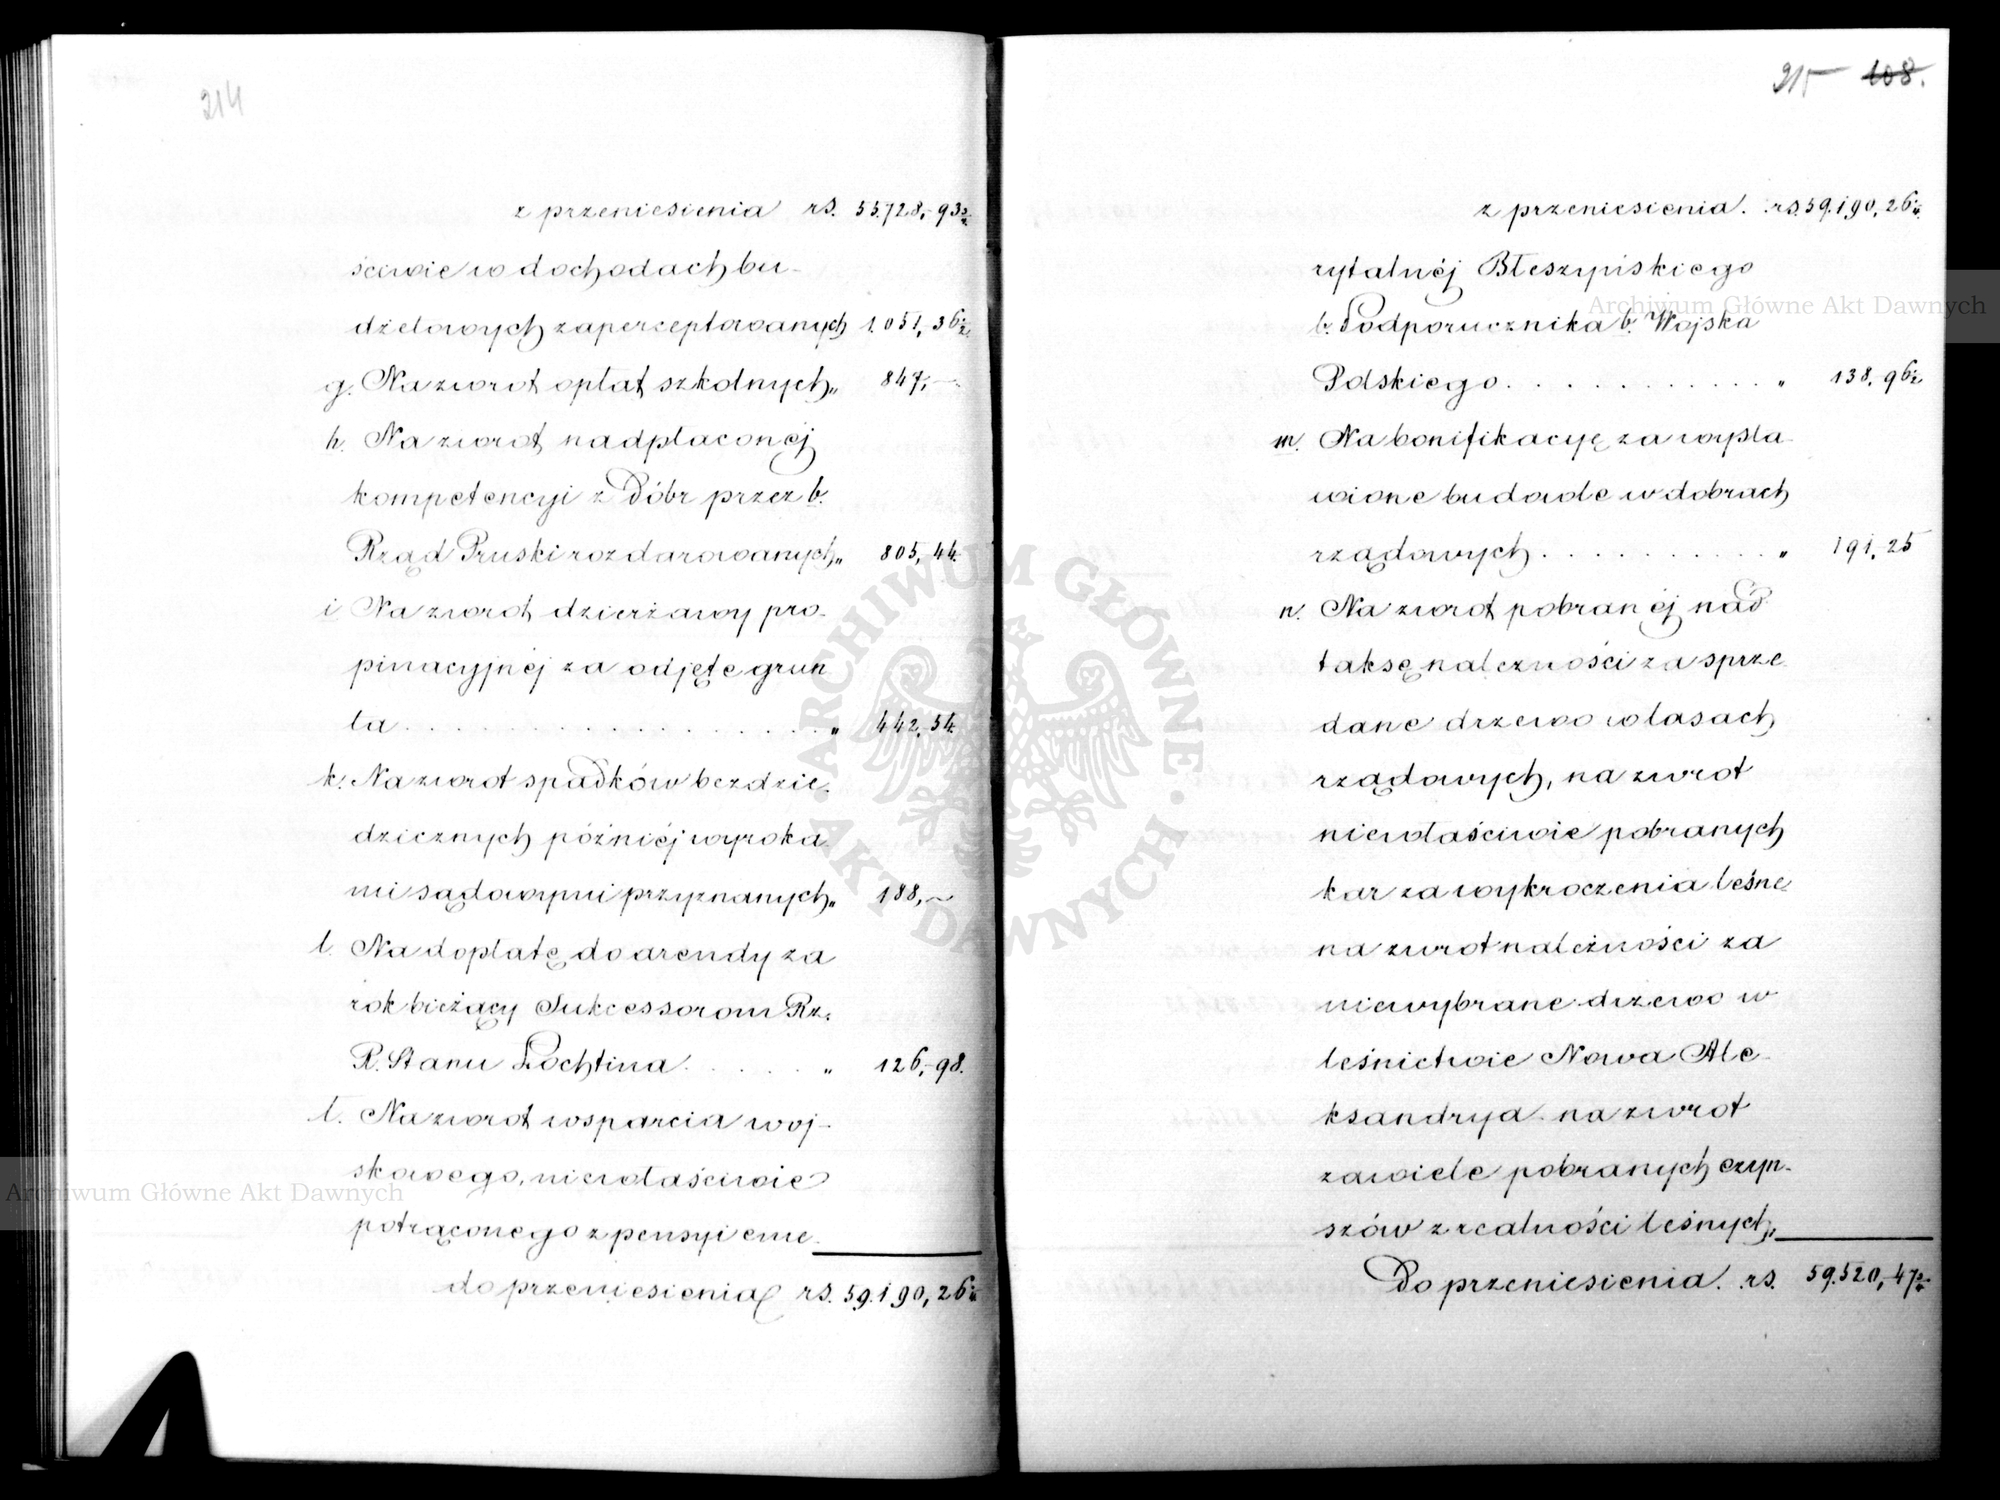 214
z przeniesienia rs. 55.728,-93½
ściwie w dochodach bu-
dżetowych zaperceptowanych 1.051,-36½
g. Na zwrot opłat szkolnych „ 847,-
h. Na zwrot nadpłaconéj
kompetencyi z Dóbr przez b.
Rząd Pruski rozdarowanych „ 805,-44.
i. Na zwrot dzierżawy pro-
pinacyjnéj za odjęte grun
ta . . . . . . . . . . . . . . . . „ 442,-54.
k. Na zwrot spadków bezdzie-
dzicznych późniéj wyroka
mi sądowymi przyznanych „ 188,~
l. Na dopłatę do arendy za
rok bieżący Sukcessorom Rz.
R. Stanu Łochtina . . . . . . „ 126,-98.
ł. Na zwrot wsparcia woj-
skowego, niewłaściwie
potrąconego z pensyi eme-
do przeniesienia rs. 59.190,26½
215 108.
z przeniesienia. rs. 59.190,26½
rytalnéj Błeszyńskiego
b. Podporucznika b. Wojska
Polskiego . . . . . . . . . . . . „ 138,96½
m. Na bonifikacyę za wysta-
wione budowle w dobrach
rządowych . . . . . . . . . . . „ 191,25
n. Na zwrot pobranéj nad
taksę należności za sprze
dane drzewo w lasach
rządowych, na zwrot
niewłaściwie pobranych
kar za wykroczenia leśne
na zwrot należności za
niewybrane drzewo w
leśnictwie Nowa Ale-
ksandrya na zwrot
zawiele pobranych czyn-
szów z realności leśnych,
Do przeniesienia. rs. 59.520,-47½
Archiwum Główne Akt Dawnych
Archiwum Główne Akt Dawnych
ARCHIWUM GŁÓWNE AKT DAWNYCH